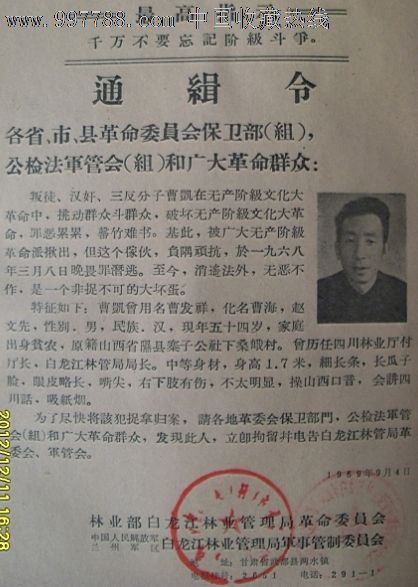 www.997788.com 中国收藏热线
最高指示
千万不要忘記阶級斗爭。
通緝令
各省、市、县革命委員会保卫部(組)，
公检法軍管会(組)和广大革命群众：
叛徒、汉奸、三反分子曹凱在无产阶級文化大
革命中，挑动群众斗群众，破坏无产阶級文化大革
命，罪恶累累，罄竹难书。基此，被广大无产阶級
革命派揪出，但这个傢伙，負隅頑抗，於一九六八
年三月八日晚畏罪潛逃。至今，消遙法外，无恶不
作，是一个非捉不可的大坏蛋。
特征如下：曹凱曾用名曹发祥，化名曹海，赵
文先，性别．男，民族．汉，現年五十四岁，家庭
出身貧农，原籍山西省隰县寨子公社下桑峨村。曾历任四川林业厅付
厅长，白龙江林管局局长。中等身材，身高1.7米，細长条，长瓜子
脸，眼皮略长，嘴尖，右下肢有伤，不太明显，操山西口晋，会讲四
川話，吸紙烟。
为了尽快将該犯捉拿归案，請各地革委会保卫部門，公检法軍管
会(組)和广大革命群众，发現此人，立即拘留幷电告白龙江林管局革
委会、軍管会。
1969年9月4日
林业部白龙江林业管理局革命委員会
中国人民解放軍
兰州軍区
白龙江林业管理局軍事管制委員会
地址：甘肃省武都县两水镇
电話：291—1
2012/12/11 16:28